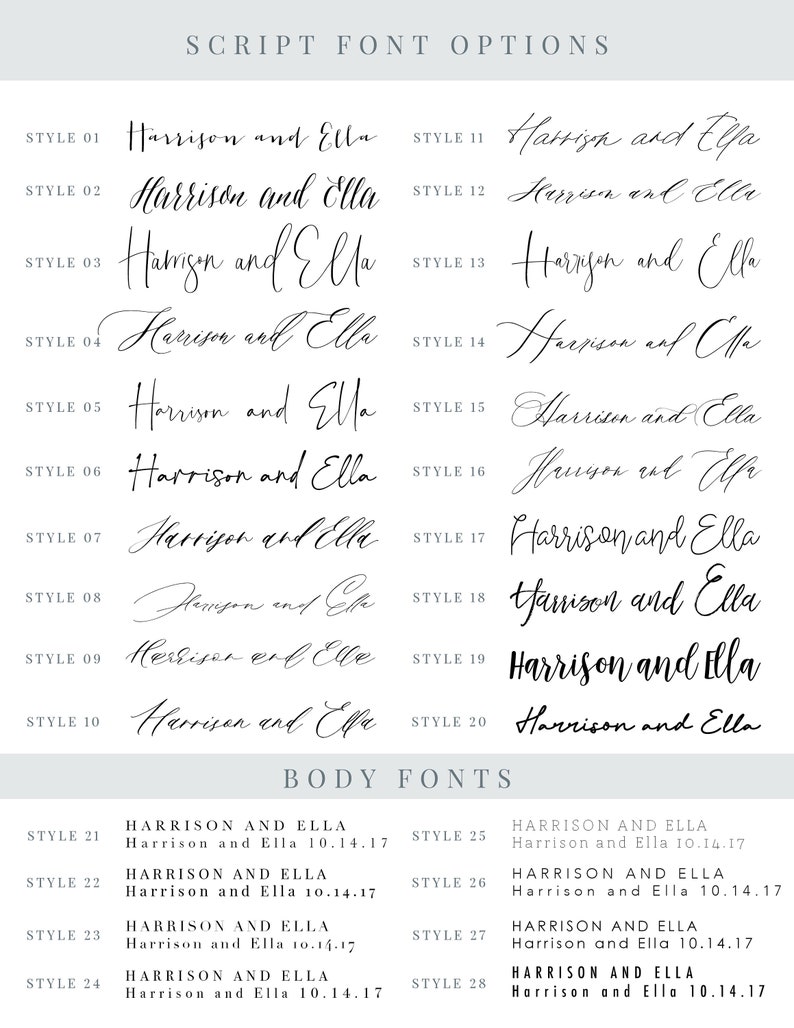 SCRIPT FONT OPTIONS
STYLE 01 Harrison and Ella
STYLE 02 Harrison and Ella
STYLE 03 Harrison and Ella
STYLE 04 Harrison and Ella
STYLE 05 Harrison and Ella
STYLE 06 Harrison and Ella
STYLE 07 Harrison and Ella
STYLE 08 Harrison and Ella
STYLE 09 Harrison and Ella
STYLE 10 Harrison and Ella
STYLE 11 Harrison and Ella
STYLE 12 Harrison and Ella
STYLE 13 Harrison and Ella
STYLE 14 Harrison and Ella
STYLE 15 Harrison and Ella
STYLE 16 Harrison and Ella
STYLE 17 Harrison and Ella
STYLE 18 Harrison and Ella
STYLE 19 Harrison and Ella
STYLE 20 Harrison and Ella
BODY FONTS
STYLE 21
HARRISON AND ELLA
Harrison and Ella 10.14.17
STYLE 22
HARRISON AND ELLA
Harrison and Ella 10.14.17
STYLE 23
HARRISON AND ELLA
Harrison and Ella 10.14.17
STYLE 24
HARRISON AND ELLA
Harrison and Ella 10.14.17
STYLE 25
HARRISON AND ELLA
Harrison and Ella 10.14.17
STYLE 26
HARRISON AND ELLA
Harrison and Ella 10.14.17
STYLE 27
HARRISON AND ELLA
Harrison and Ella 10.14.17
STYLE 28
HARRISON AND ELLA
Harrison and Ella 10.14.17